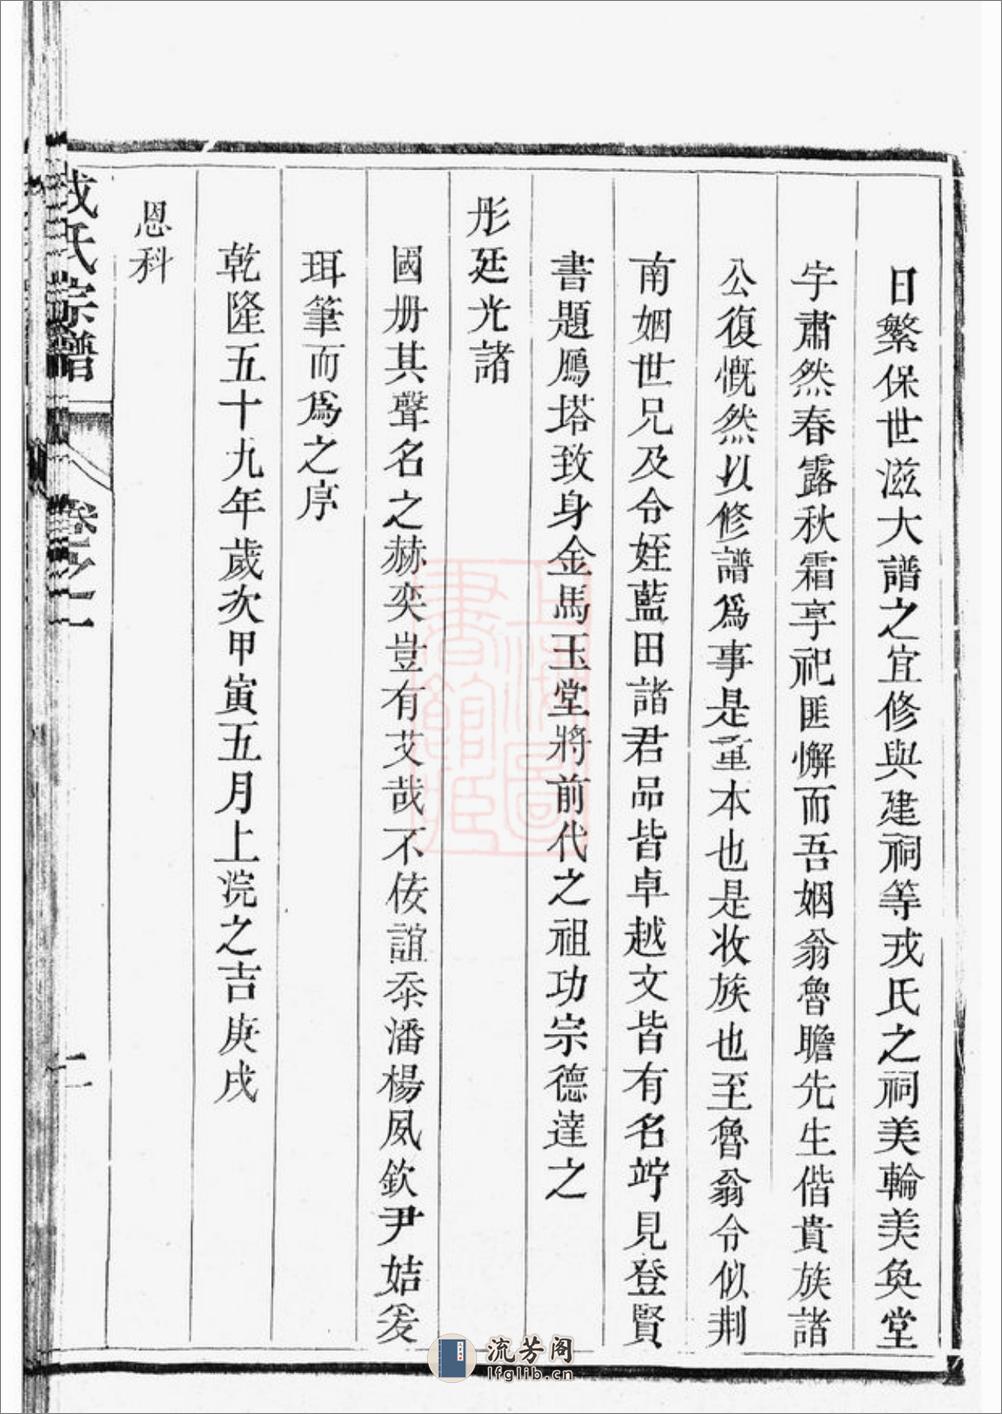 日繁保世滋大譜之宜修與建祠等戎氏之祠美輪美奐堂
宇肅然春露秋霜享祀匪懈而吾姻翁魯瞻先生偕貴族諸
公復慨然以修譜爲事是重本也是收族也至魯翁令似荆
南姻世兄及令姪藍田諸君品皆卓越文皆有名竚見登賢
書題鴈塔致身金馬玉堂將前代之祖功宗德達之
彤廷光諸
國册其聲名之赫奕豈有艾哉不佞誼忝潘楊夙欽尹姞爰
珥筆而爲之序
乾隆五十九年歲次甲寅五月上浣之吉庚戌
恩科
戎氏宗譜
卷之一
二
上海圖書館藏
流芳阁
lfglib.cn